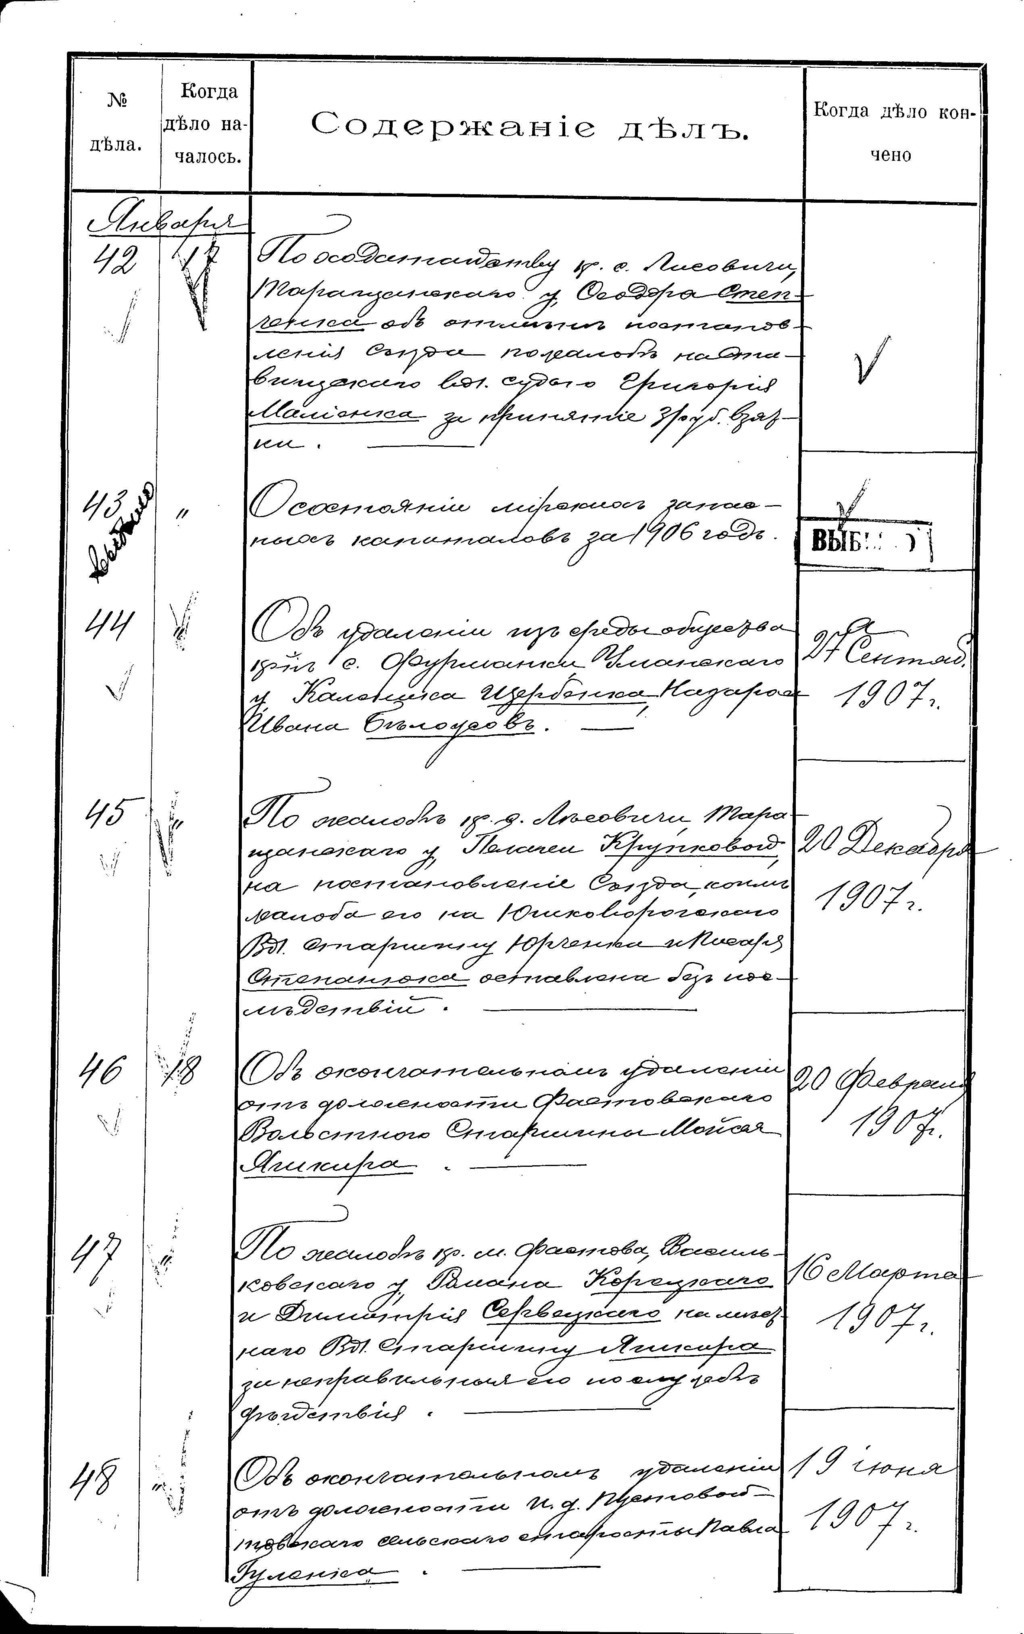 № дѣла.
Когда дѣло началось.
Содержаніе дѣлъ.
Когда дѣло кончено
Января
42 17 По ходатайству кр. с. Лисовичи,
Таращанскаго у. Ѳеодора Степ-
ченка объ отмѣнѣ постанов-
ленія Съѣзда по жалобѣ на Ста-
вищскаго Вол. судью Григорія
Маліенка за принятіе 3 руб. взят-
ки.
43 " О состояніи мірскихъ запас-
ныхъ капиталовъ за 1906 годъ.
выбыло
ВЫБЫЛО
44 " Объ удаленіи изъ среды общества
кр-нъ с. Фурманки Уманскаго
у. Калинника Щербенка, Назара и
Ивана Бѣлоусовъ.
27 Сентяб.
1907 г.
45 " По жалобѣ кр. д. Лѣсовичи, Тара-
щанскаго у. Пелагеи Крупковой
на постановленіе Съѣзда, коимъ
жалоба его на Юшковорогскаго
Вол. Старшину Юрченка и Писаря
Степанюка оставлена безъ пос-
лѣдствій.
20 Декабря
1907 г.
46 18 Объ окончательномъ удаленіи
отъ должности Фастовскаго
Волостного Старшины Мойсея
Яшкира.
20 Февраля
1907 г.
47 " По жалобѣ кр. м. Фастова, Василь-
ковскаго у. Романа Корецкаго
и Димитрія Сервецкаго на мѣст-
наго Вол. Старшину Яшкира
за неправильныя его по службѣ
дѣйствія.
16 Марта
1907 г.
48 " Объ окончательномъ удаленіи
отъ должности и. д. Пустовой-
товскаго сельскаго старосты Павла
Гуленка.
19 іюня
1907 г.